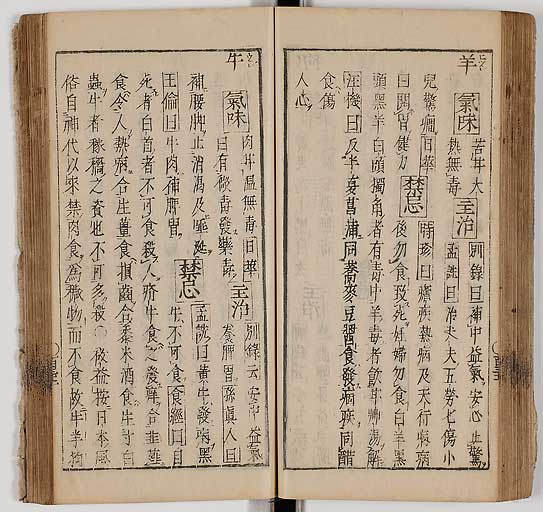 羊
氣味 苦甘大
熱無毒 主治 別錄曰補中益氣安心止驚
孟詵曰治丈夫五勞七傷小
兒驚癇日華
曰開胃健力 禁忌 時珍曰熱病及天行病瘧病
後勿食致死妊婦勿食白羊黑
頭黑羊白頭獨角者有毒中羊毒者飲甘艸湯解
汪機曰反半夏菖蒲同蕎麥豆醬食發痼疾同醋
食傷
人心
牛
氣味 肉甘溫無毒日華
曰有微毒發藥毒 主治 別錄云安中益氣
養脾胃孫眞人曰
補腰脚止消渴及唾涎
王倫曰牛肉補脾胃 禁忌 孟詵曰黃牛發病黑
牛不可食食經曰自
死者白首者不可食殺人疥牛食之發痒合韭薤
食令人熱病合生薑食損齒合黍米酒食生寸白
蟲牛者稼穡之資也不可多殺○按日本風
俗自神代以來禁肉食爲穢物而不食故牛羊狗